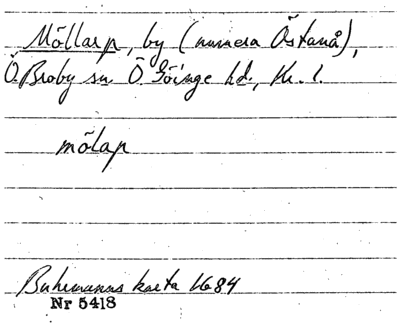 Möllarp, by (numera Östanå),
Ö. Broby sn Ö. Göinge hd, Kr. l.
mölap
Buhrmanns karta 1684
Nr 5418